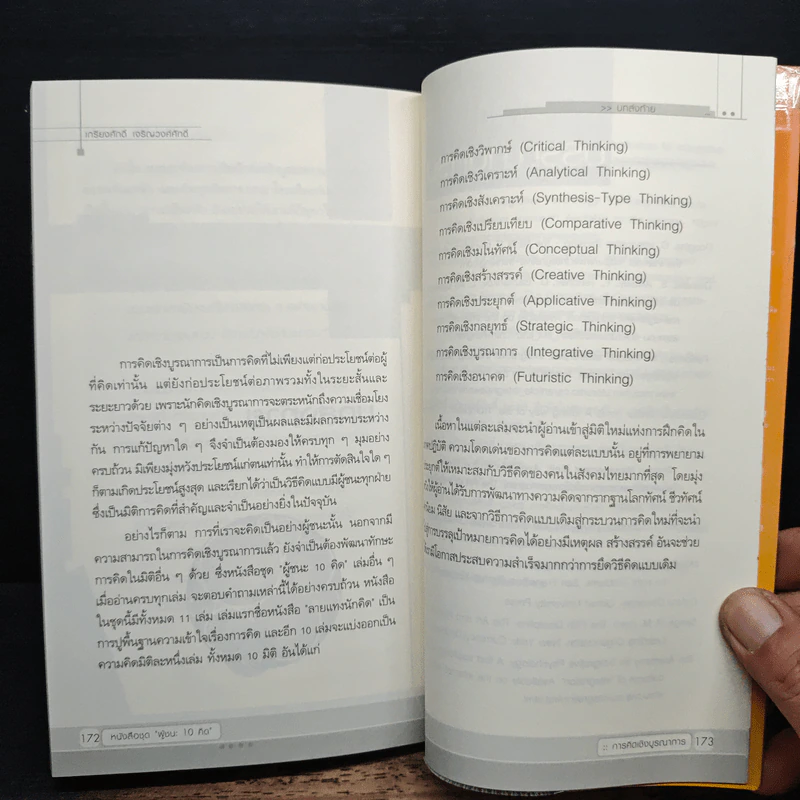 เกรียงศักดิ์ เจริญวงศ์ศักดิ์
การคิดเชิงบูรณาการเป็นการคิดที่ไม่เพียงแต่ก่อประโยชน์ต่อผู้
ที่คิดเท่านั้น แต่ยังก่อประโยชน์ต่อภาพรวมทั้งในระยะสั้นและ
ระยะยาวด้วย เพราะนักคิดเชิงบูรณาการจะตระหนักถึงความเชื่อมโยง
ระหว่างปัจจัยต่าง ๆ อย่างเป็นเหตุเป็นผลและมีผลกระทบระหว่าง
กัน การแก้ปัญหาใด ๆ จึงจำเป็นต้องมองให้ครบทุก ๆ มุมอย่าง
ครบถ้วน มิเพียงมุ่งหวังประโยชน์แก่ตนเท่านั้น ทำให้การตัดสินใจใด ๆ
ก็ตามเกิดประโยชน์สูงสุด และเรียกได้ว่าเป็นวิธีคิดแบบมีผู้ชนะทุกฝ่าย
ซึ่งเป็นมิติการคิดที่สำคัญและจำเป็นอย่างยิ่งในปัจจุบัน
อย่างไรก็ตาม การที่เราจะคิดเป็นอย่างผู้ชนะนั้น นอกจากมี
ความสามารถในการคิดเชิงบูรณาการแล้ว ยังจำเป็นต้องพัฒนาทักษะ
การคิดในมิติอื่น ๆ ด้วย ซึ่งหนังสือชุด "ผู้ชนะ 10 คิด" เล่มอื่น ๆ
เมื่ออ่านครบทุกเล่ม จะตอบคำถามเหล่านี้ได้อย่างครบถ้วน หนังสือ
ในชุดนี้มีทั้งหมด 11 เล่ม เล่มแรกชื่อหนังสือ "ลายแทงนักคิด" เป็น
การปูพื้นฐานความเข้าใจเรื่องการคิด และอีก 10 เล่มจะแบ่งออกเป็น
ความคิดมิติละหนึ่งเล่ม ทั้งหมด 10 มิติ อันได้แก่
172 หนังสือชุด "ผู้ชนะ 10 คิด"
>> บทส่งท้าย
การคิดเชิงวิพากษ์ (Critical Thinking)
การคิดเชิงวิเคราะห์ (Analytical Thinking)
การคิดเชิงสังเคราะห์ (Synthesis-Type Thinking)
การคิดเชิงเปรียบเทียบ (Comparative Thinking)
การคิดเชิงมโนทัศน์ (Conceptual Thinking)
การคิดเชิงสร้างสรรค์ (Creative Thinking)
การคิดเชิงประยุกต์ (Applicative Thinking)
การคิดเชิงกลยุทธ์ (Strategic Thinking)
การคิดเชิงบูรณาการ (Integrative Thinking)
การคิดเชิงอนาคต (Futuristic Thinking)
เนื้อหาในแต่ละเล่มจะนำผู้อ่านเข้าสู่มิติใหม่แห่งการฝึกคิดใน
ความโดดเด่นของการคิดแต่ละแบบนั้น อยู่ที่การพยายาม
ให้เหมาะสมกับวิธีคิดของคนในสังคมไทยมากที่สุด โดยมุ่ง
ให้ผู้อ่านได้รับการพัฒนาทางความคิดจากรากฐานโลกทัศน์ ชีวทัศน์
นิสัย และจากวิธีการคิดแบบเดิมสู่กระบวนการคิดใหม่ที่จะนำ
การบรรลุเป้าหมายการคิดได้อย่างมีเหตุผล สร้างสรรค์ อันจะช่วย
มีโอกาสประสบความสำเร็จมากกว่าการยึดวิธีคิดแบบเดิม
:: การคิดเชิงบูรณาการ 173